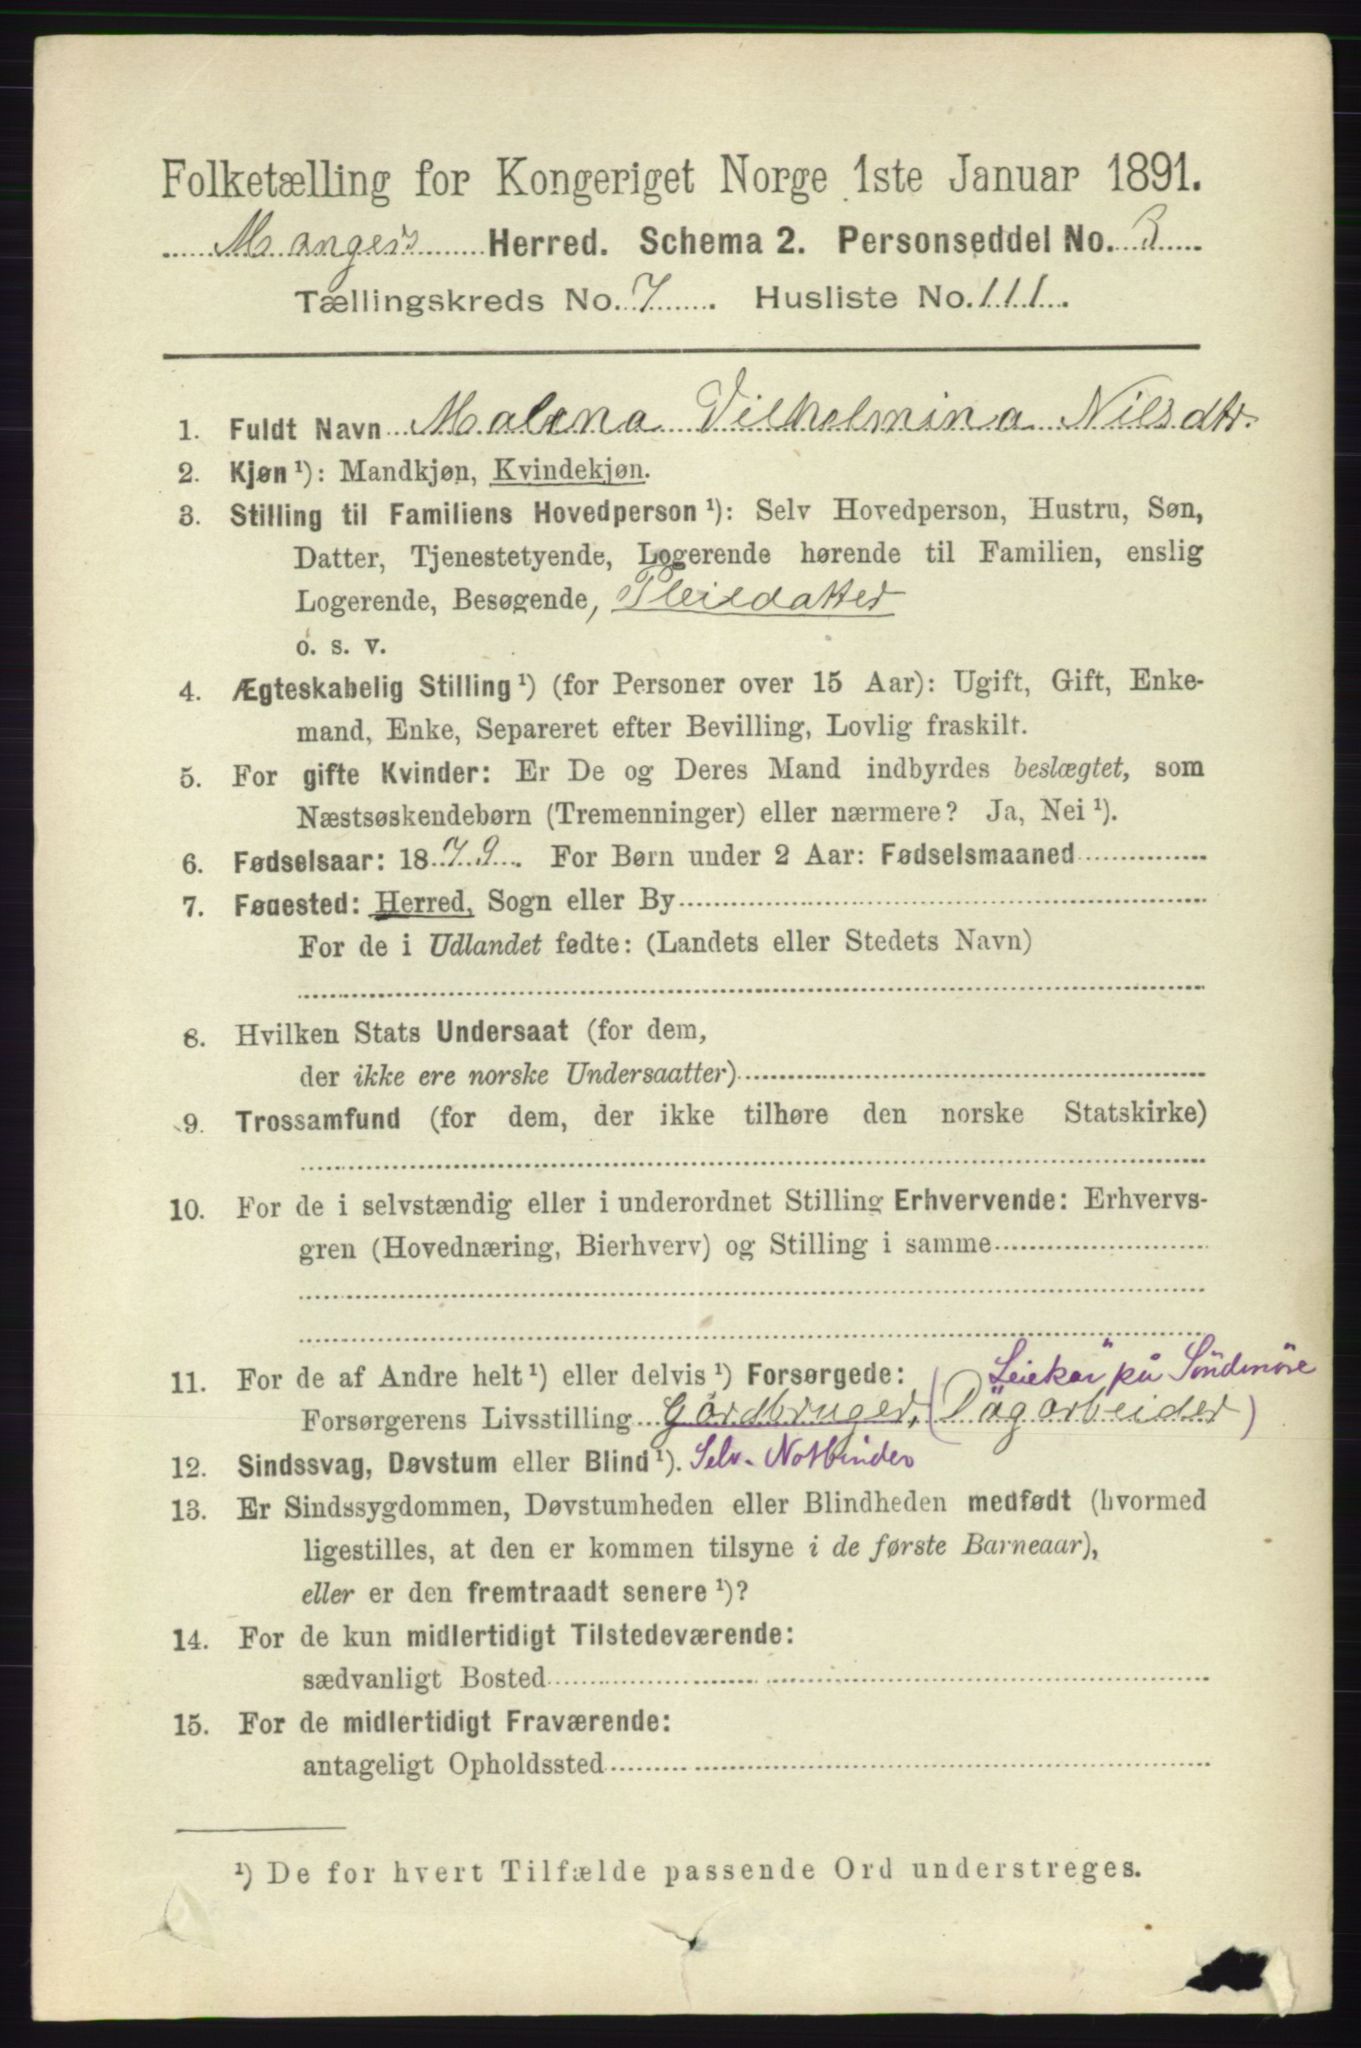 Folketælling for Kongeriget Norge 1ste Januar 1891.
Mangers Herred. Schema 2. Personseddel No. 3
Tællingskreds No. 7. Husliste No. 111.
1. Fuldt Navn Malena Vilhelmina Nilsdtr.
2. Kjøn ¹): Mandkjøn, Kvindekjøn.
3. Stilling til Familiens Hovedperson ¹): Selv Hovedperson, Hustru, Søn,
Datter, Tjenestetyende, Logerende hørende til Familien, enslig
Logerende, Besøgende, Pleiedatter
o. s. v.
4. Ægteskabelig Stilling ¹) (for Personer over 15 Aar): Ugift, Gift, Enke-
mand, Enke, Separeret efter Bevilling, Lovlig fraskilt.
5. For gifte Kvinder: Er De og Deres Mand indbyrdes beslægtet, som
Næstsøskendebørn (Tremenninger) eller nærmere? Ja, Nei ¹).
6. Fødselsaar: 1879. For Børn under 2 Aar: Fødselsmaaned
7. Fødested: Herred, Sogn eller By
For de i Udlandet fødte: (Landets eller Stedets Navn)
8. Hvilken Stats Undersaat (for dem,
der ikke ere norske Undersaatter)
9. Trossamfund (for dem, der ikke tilhøre den norske Statskirke)
10. For de i selvstændig eller i underordnet Stilling Erhvervende: Erhvervs-
gren (Hovednæring, Bierhverv) og Stilling i samme
11. For de af Andre helt ¹) eller delvis ¹) Forsørgede: "Leiekar" på Söndmöre
Forsørgerens Livsstilling Gårdbruger, (Dagarbeider)
12. Sindssvag, Døvstum eller Blind ¹). Selv. Notbinder
13. Er Sindssygdommen, Døvstumheden eller Blindheden medfødt (hvormed
ligestilles, at den er kommen tilsyne i de første Barneaar),
eller er den fremtraadt senere ¹)?
14. For de kun midlertidigt Tilstedeværende:
sædvanligt Bosted
15. For de midlertidigt Fraværende:
antageligt Opholdssted
¹) De for hvert Tilfælde passende Ord understreges.